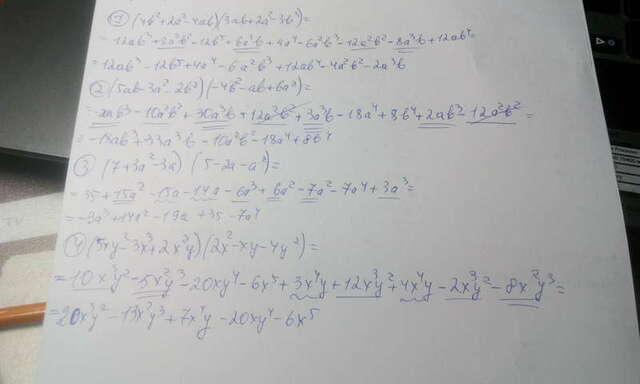 1) (4b²+2a²-4ab)(3ab+2a²-3b²)=
=12ab³+8a²b²-12b⁴+6a³b+4a⁴-6a²b²-12a²b²-8a³b+12ab³=
=12ab³-12b⁴+4a⁴-6a²b²+12ab⁴-4a²b²-2a³b
2) (5ab-3a²-2b²)(-4b²-ab+6a²)=
=-20ab³-10a²b²+30a³b+12a²b²+3a³b-18a⁴+8b⁴+2ab³-12a²b²=
=-18ab³+33a³b-10a²b²-18a⁴+8b⁴
3) (7+3a²-3a)(5-2a-a²)=
=35+15a²-15a-14a-6a³+6a²-7a²-7a⁴+3a³=
=-3a³+14a²-19a+35-7a⁴
4) (5xy²-3x³+2x²y)(2x²-xy-4y²)=
=10x³y²-5x²y³-20xy⁴-6x⁵+3x⁴y+12x³y²+4x⁴y-2x³y²-8x²y³=
=20x³y²-13x²y³+7x⁴y-20xy⁴-6x⁵